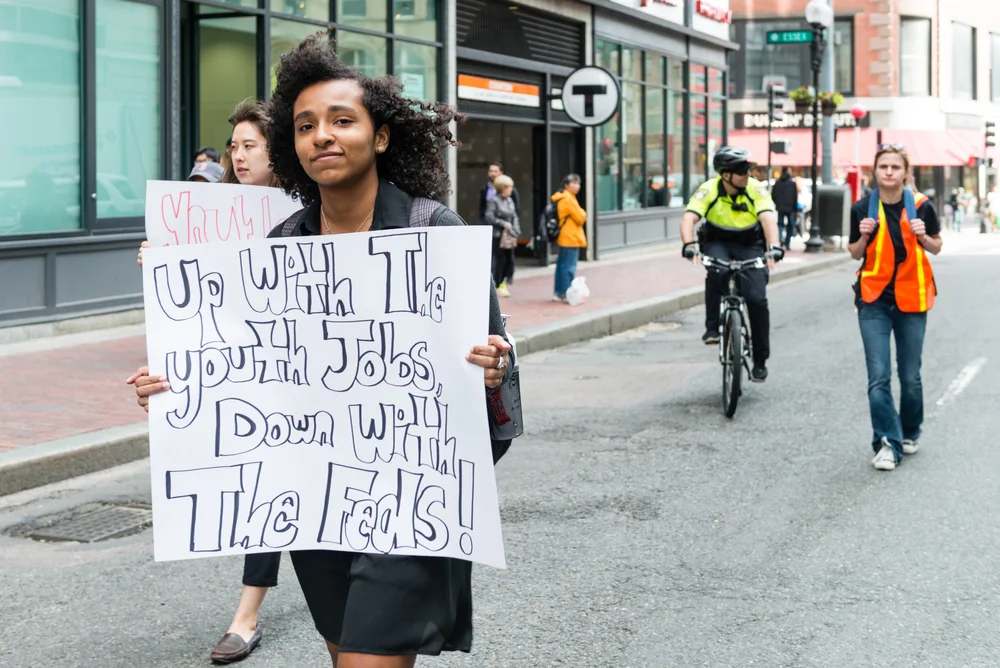 ESSEX
DUNKIN' DONUTS
T
Youth
Up With The
youth Jobs,
Down With
The Feds!